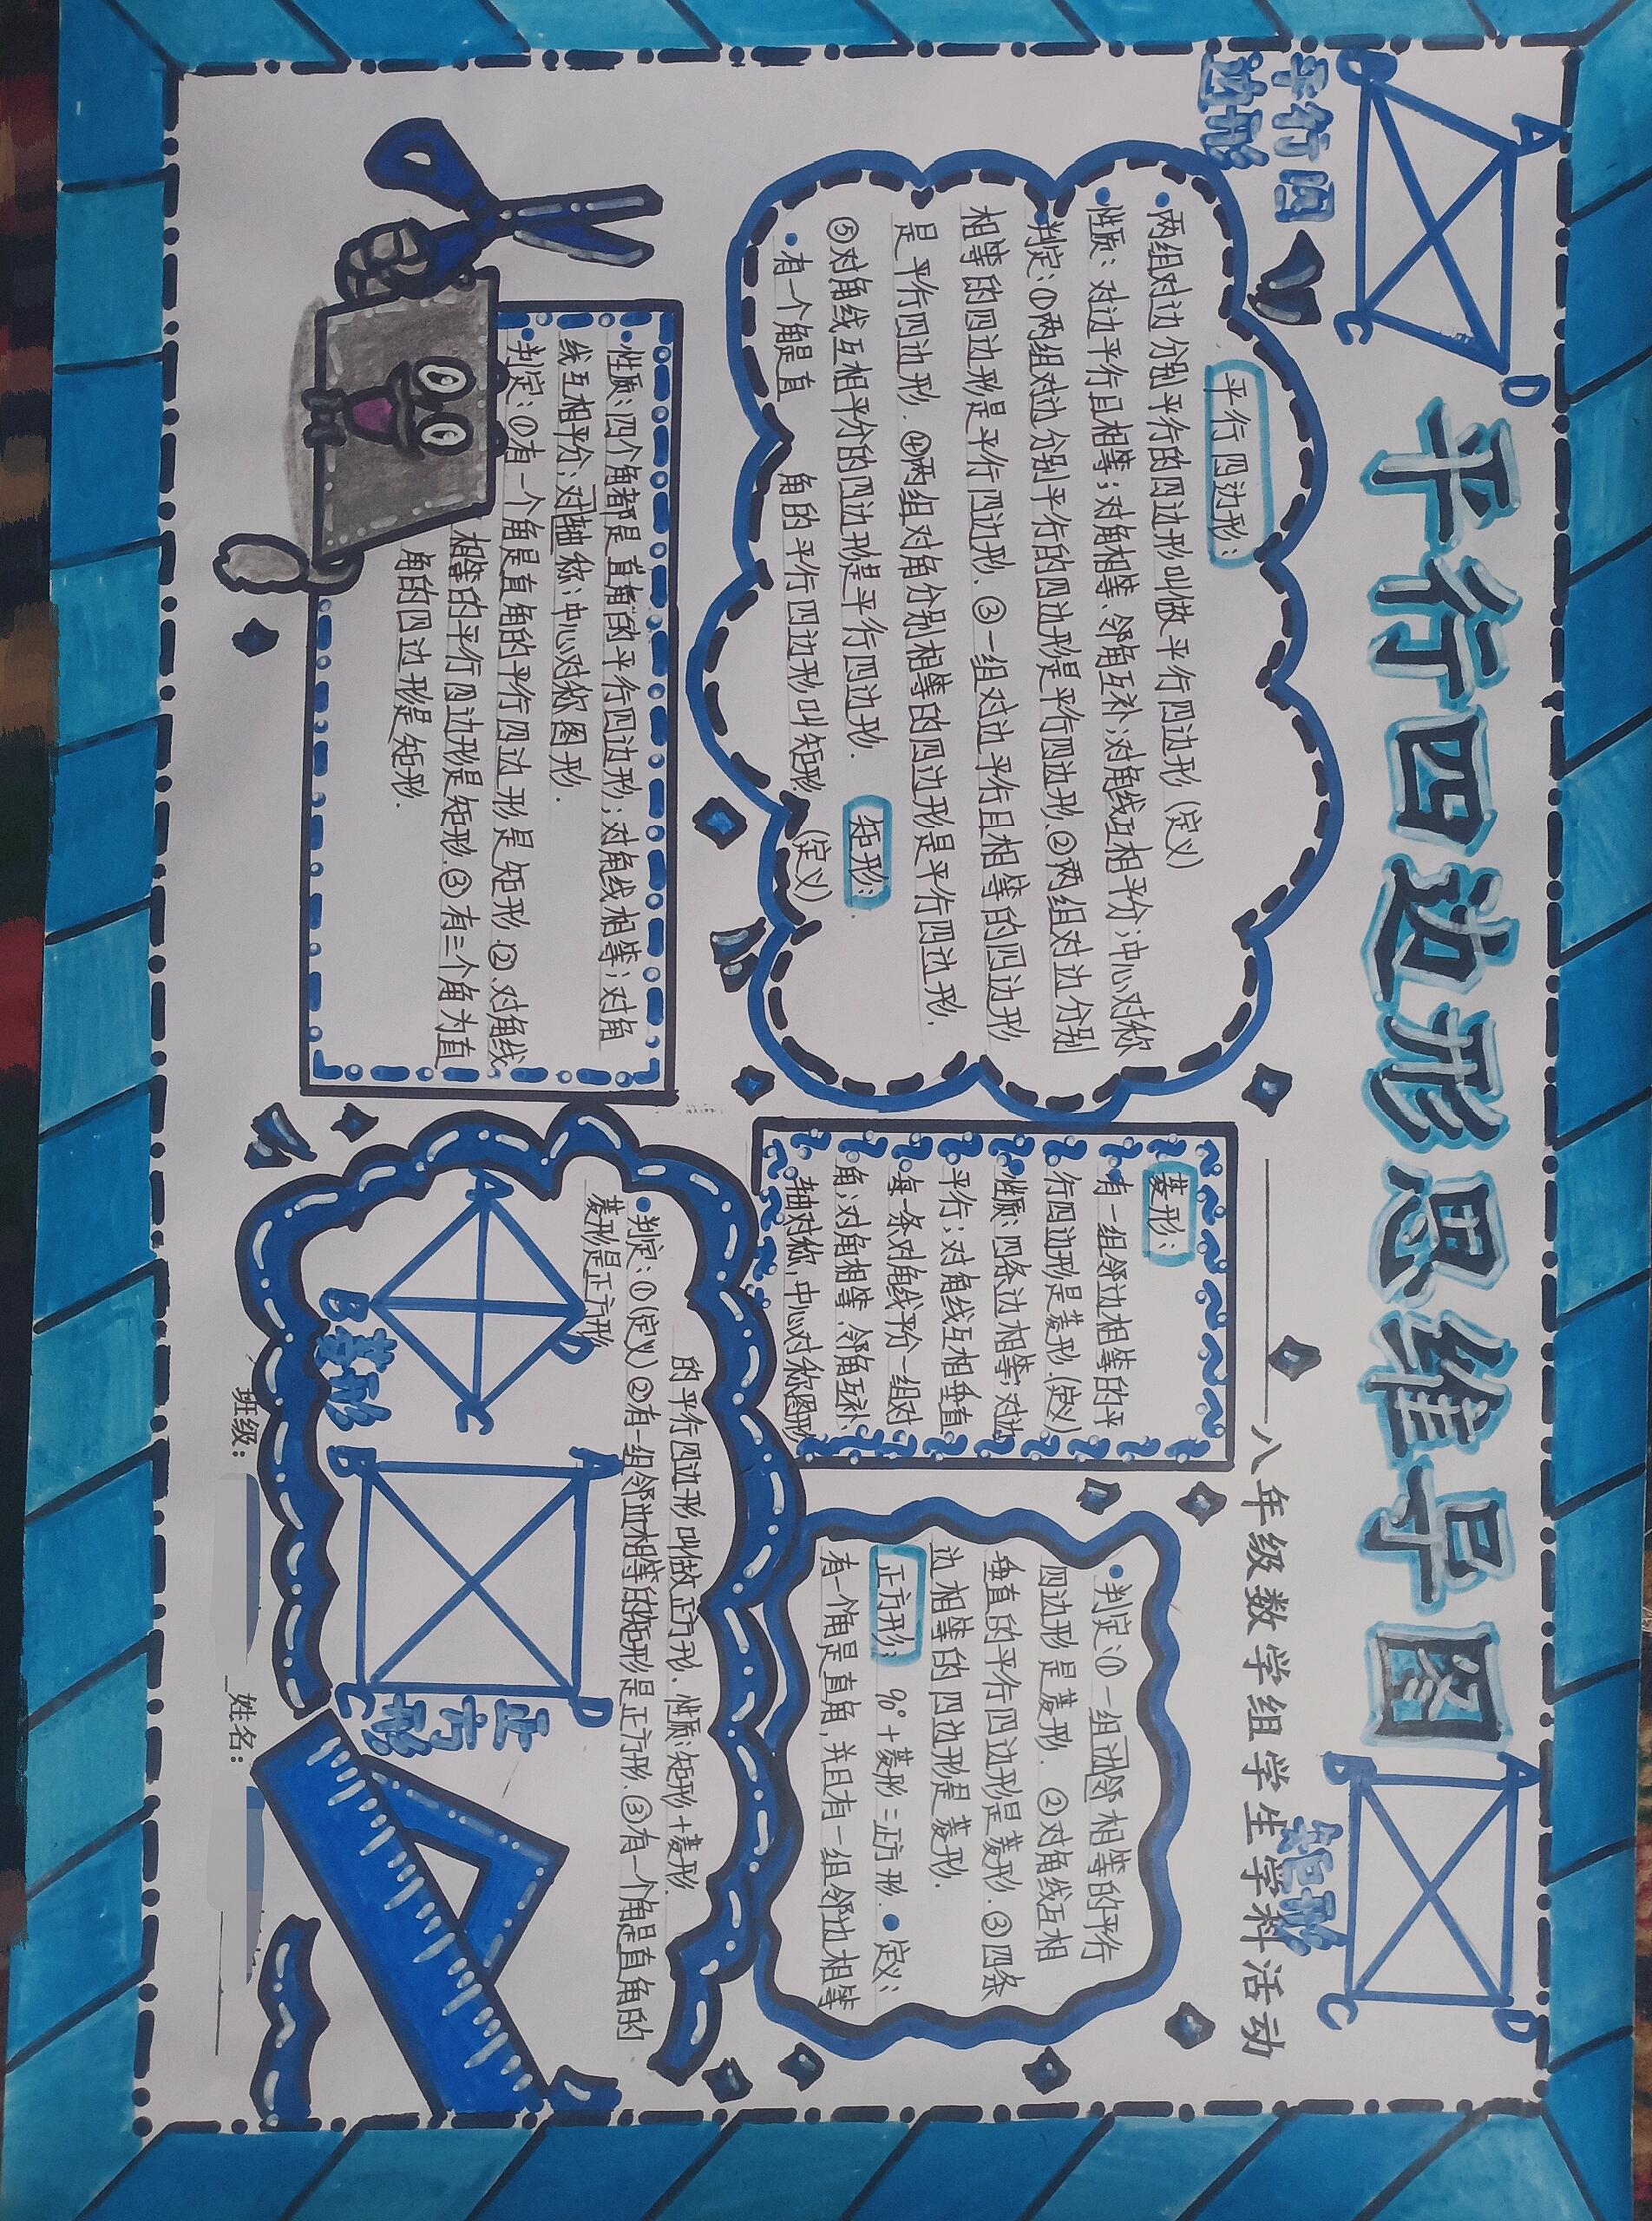 平行四边形思维导图
——八年级数学组学生学科活动
A
D
B
C
平行四
边形
A
D
B
C
矩形
平行四边形:
•两组对边分别平行的四边形叫做平行四边形(定义)
•性质:对边平行且相等;对角相等、邻角互补;对角线互相平分;中心对称
•判定:①两组对边分别平行的四边形是平行四边形.②两组对边分别
相等的四边形是平行四边形.③一组对边平行且相等的四边形
是平行四边形.④两组对角分别相等的四边形是平行四边形.
⑤对角线互相平分的四边形是平行四边形.
矩形:
•有一个角是直 角的平行四边形叫矩形.(定义)
•性质:四个角都是直角的平行四边形;对角线相等;对角
线互相平分;对轴称;中心对称图形.
•判定:①有一个角是直角的平行四边形是矩形.②.对角线
相等的平行四边形是矩形.③有三个角为直
角的四边形是矩形.
菱形:
•有一组邻边相等的平
行四边形是菱形.(定义)
•性质:四条边相等;对边
平行;对角线互相垂直
每一条对角线平分一组对
角;对角相等、邻角互补
轴对称,中心对称图形
•判定:①一组边邻相等的平行
四边形是菱形.②对角线互相
垂直的平行四边形是菱形.③四条
边相等的四边形是菱形.
正方形: 90°+菱形=正方形.•定义:
有一个角是直角,并且有一组邻边相等
的平行四边形叫做正方形.性质:矩形+菱形.
•判定:①(定义)②有一组邻边相等的矩形是正方形.③有一个角是直角的
菱形是正方形
A
B
C
D
菱形
A
B
C
D
正方
形
班级: 姓名: